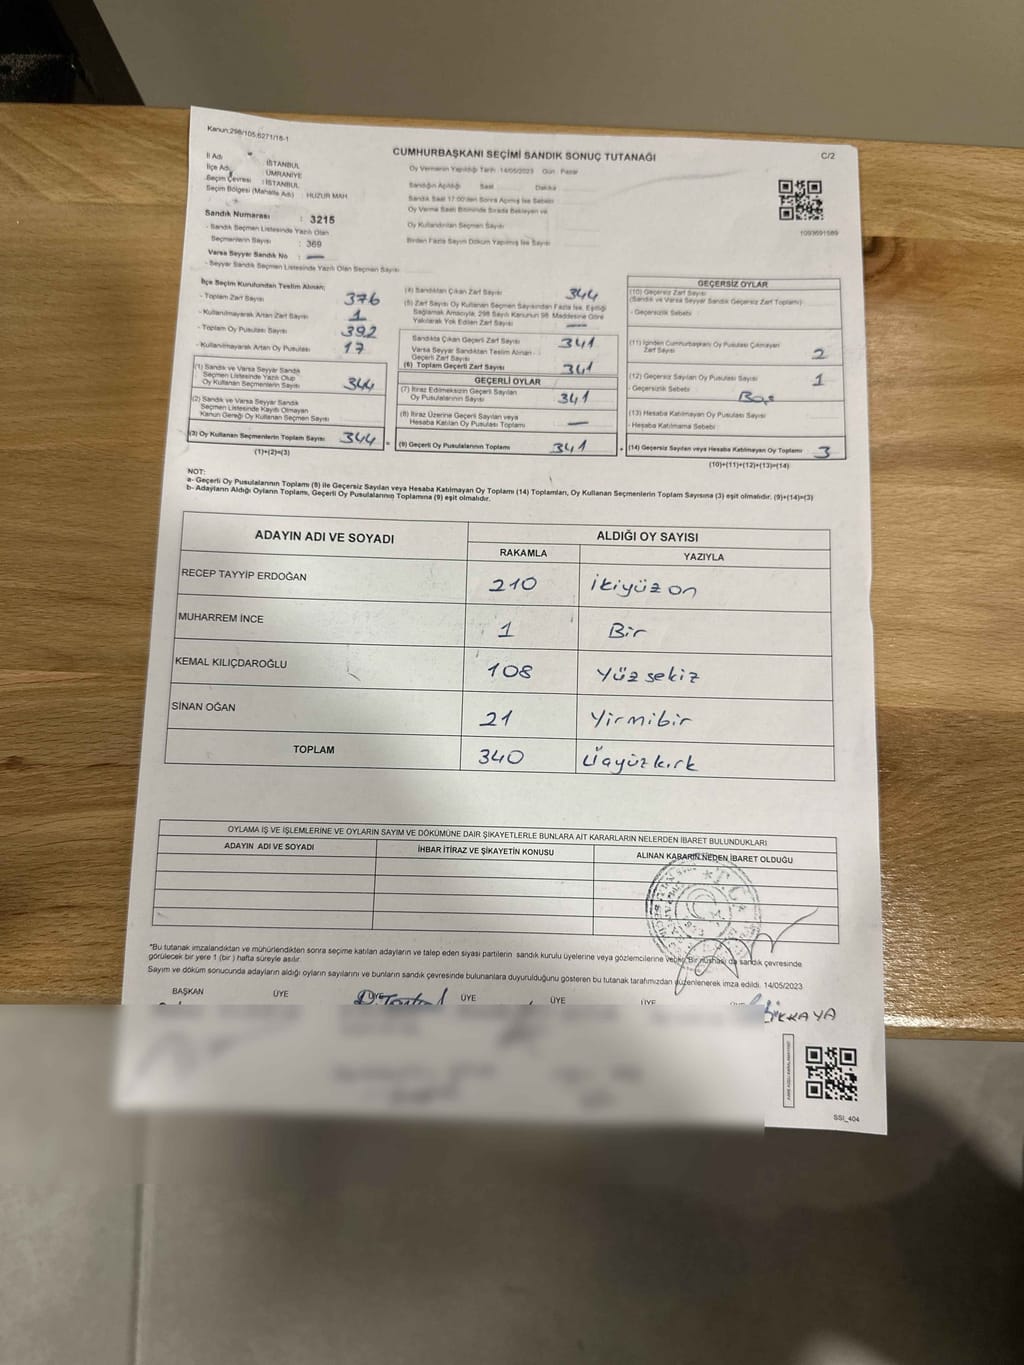 Kanun:298/105,6271/18-1
CUMHURBAŞKANI SEÇİMİ SANDIK SONUÇ TUTANAĞI
C/2
İl Adı : İSTANBUL
İlçe Adı : ÜMRANİYE
Seçim Çevresi : İSTANBUL
Seçim Bölgesi (Mahalle Adı) : HUZUR MAH
Oy Vermenin Yapıldığı Tarih: 14/05/2023 Gün: Pazar
Sandığın Açıldığı Saat Dakika
Sandık Saat 17:00'den Sonra Açılmış İse Sebebi
Oy Verme Saati Bitiminde Sırada Bekleyen ve
Oy Kullandırılan Seçmen Sayısı
Birden Fazla Sayım Döküm Yapılmış İse Sayısı
Sandık Numarası : 3215
- Sandık Seçmen Listesinde Yazılı Olan
Seçmenlerin Sayısı : 369
Varsa Seyyar Sandık No : —
- Seyyar Sandık Seçmen Listesinde Yazılı Olan Seçmen Sayısı
1093691589
İlçe Seçim Kurulundan Teslim Alınan;
- Toplam Zarf Sayısı 376
- Kullanılmayarak Artan Zarf Sayısı 1
- Toplam Oy Pusulası Sayısı 392
- Kullanılmayarak Artan Oy Pusulası 17
(1) Sandık ve Varsa Seyyar Sandık
Seçmen Listesinde Yazılı Olup
Oy Kullanan Seçmenlerin Sayısı 344
(2) Sandık ve Varsa Seyyar Sandık
Seçmen Listesinde Kaydı Olmayan
Kanun Gereği Oy Kullanan Seçmen Sayısı
(3) Oy Kullanan Seçmenlerin Toplam Sayısı 344
(1)+(2)=(3)
(4) Sandıktan Çıkan Zarf Sayısı 344
(5) Zarf Sayısı Oy Kullanan Seçmen Sayısından Fazla İse, Eşitliği
Sağlamak Amacıyla, 298 Sayılı Kanunun 98. Maddesine Göre
Yakılarak Yok Edilen Zarf Sayısı —
Sandıkta Çıkan Geçerli Zarf Sayısı 341
Varsa Seyyar Sandıktan Teslim Alınan
Geçerli Zarf Sayısı
(6) Toplam Geçerli Zarf Sayısı 341
GEÇERLİ OYLAR
(7) İtiraz Edilmeksizin Geçerli Sayılan
Oy Pusulasının Sayısı 341
(8) İtiraz Üzerine Geçerli Sayılan veya
Hesaba Katılan Oy Pusulası Toplamı —
= (9) Geçerli Oy Pusulalarının Toplamı 341 +
GEÇERSİZ OYLAR
(10) Geçersiz Zarf Sayısı
(Sandık ve Varsa Seyyar Sandık Geçersiz Zarf Toplamı)
- Geçersizlik Sebebi
(11) İçinden Cumhurbaşkanı Oy Pusulası Çıkmayan
Zarf Sayısı 2
(12) Geçersiz Sayılan Oy Pusulası Sayısı 1
- Geçersizlik Sebebi Boş
(13) Hesaba Katılmayan Oy Pusulası Sayısı
- Hesaba Katılmama Sebebi
(14) Geçersiz Sayılan veya Hesaba Katılmayan Oy Toplamı 3
(10)+(11)+(12)+(13)=(14)
NOT:
a- Geçerli Oy Pusulalarının Toplamı (9) ile Geçersiz Sayılan veya Hesaba Katılmayan Oy Toplamı (14) Toplamları, Oy Kullanan Seçmenlerin Toplam Sayısına (3) eşit olmalıdır. (9)+(14)=(3)
b- Adayların Aldığı Oyların Toplamı, Geçerli Oy Pusulalarının Toplamına (9) eşit olmalıdır.
ADAYIN ADI VE SOYADI ALDIĞI OY SAYISI
RAKAMLA YAZIYLA
RECEP TAYYİP ERDOĞAN 210 ikiyüz on
MUHARREM İNCE 1 Bir
KEMAL KILIÇDAROĞLU 108 Yüz sekiz
SİNAN OĞAN 21 Yirmibir
TOPLAM 340 Üçyüzkırk
OYLAMA İŞ VE İŞLEMLERİNE VE OYLARIN SAYIM VE DÖKÜMÜNE DAİR ŞİKAYETLERLE BUNLARA AİT KARARLARIN NELERDEN İBARET BULUNDUKLARI
ADAYIN ADI VE SOYADI İHBAR İTİRAZ VE ŞİKAYETİN KONUSU ALINAN KARARIN NEDEN İBARET OLDUĞU
T.C.
*Bu tutanak imzalandıktan ve mühürlendikten sonra seçime katılan adayların ve talep eden siyasi partilerin sandık kurulu üyelerine veya gözlemcilerine verilir. Bir nüshası da sandık çevresinde
görülecek bir yere 1 (bir) hafta süreyle asılır.
Sayım ve döküm sonucunda adayların aldığı oyların sayılarını ve bunların sandık çevresinde bulunanlara duyurulduğunu gösteren bu tutanak tarafımızdan düzenlenerek imza edildi. 14/05/2023
BAŞKAN ÜYE ÜYE ÜYE ÜYE ÜYE ÜYE
SSI_404